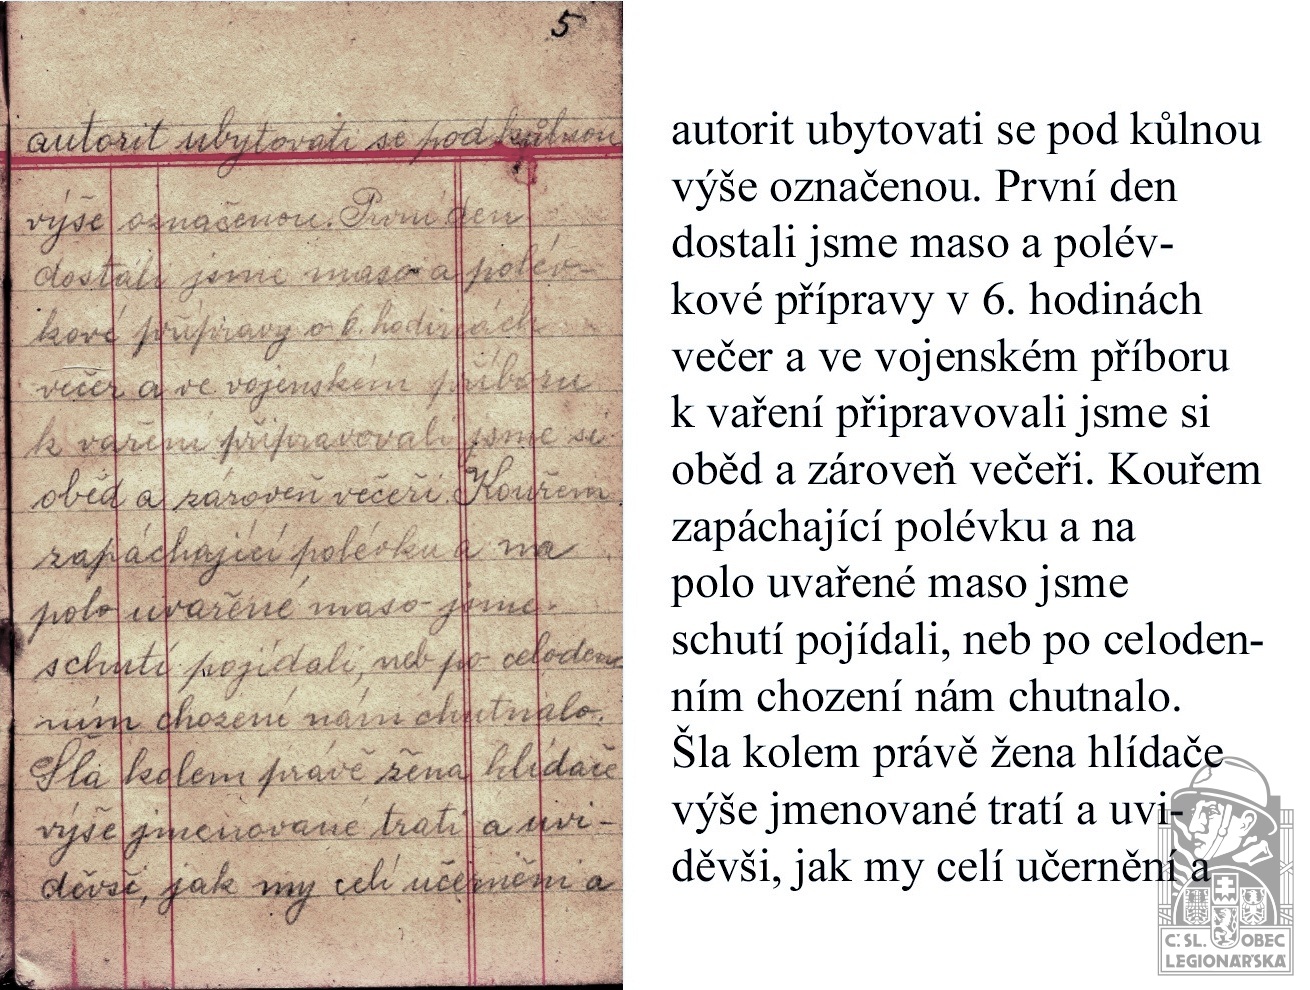 5
autorit ubytovati se pod kůlnou
výše označenou. První den
dostali jsme maso a polév-
kové přípravy o 6. hodinách
večer a ve vojenském příboru
k vaření připravovali jsme si
oběd a zároveň večeři. Kouřem
zapáchající polévku a na
polo uvařené maso jsme
schutí pojídali, neb po celoden
ním chození nám chutnalo.
Šla kolem právě žena hlídače
výše jmenované trati a uvi-
děvši, jak my celí učernění a
autorit ubytovati se pod kůlnou
výše označenou. První den
dostali jsme maso a polév-
kové přípravy v 6. hodinách
večer a ve vojenském příboru
k vaření připravovali jsme si
oběd a zároveň večeři. Kouřem
zapáchající polévku a na
polo uvařené maso jsme
schutí pojídali, neb po celoden-
ním chození nám chutnalo.
Šla kolem právě žena hlídače
výše jmenované tratí a uvi-
děvši, jak my celí učernění a
Č. SL. OBEC
LEGIONÁŘSKÁ